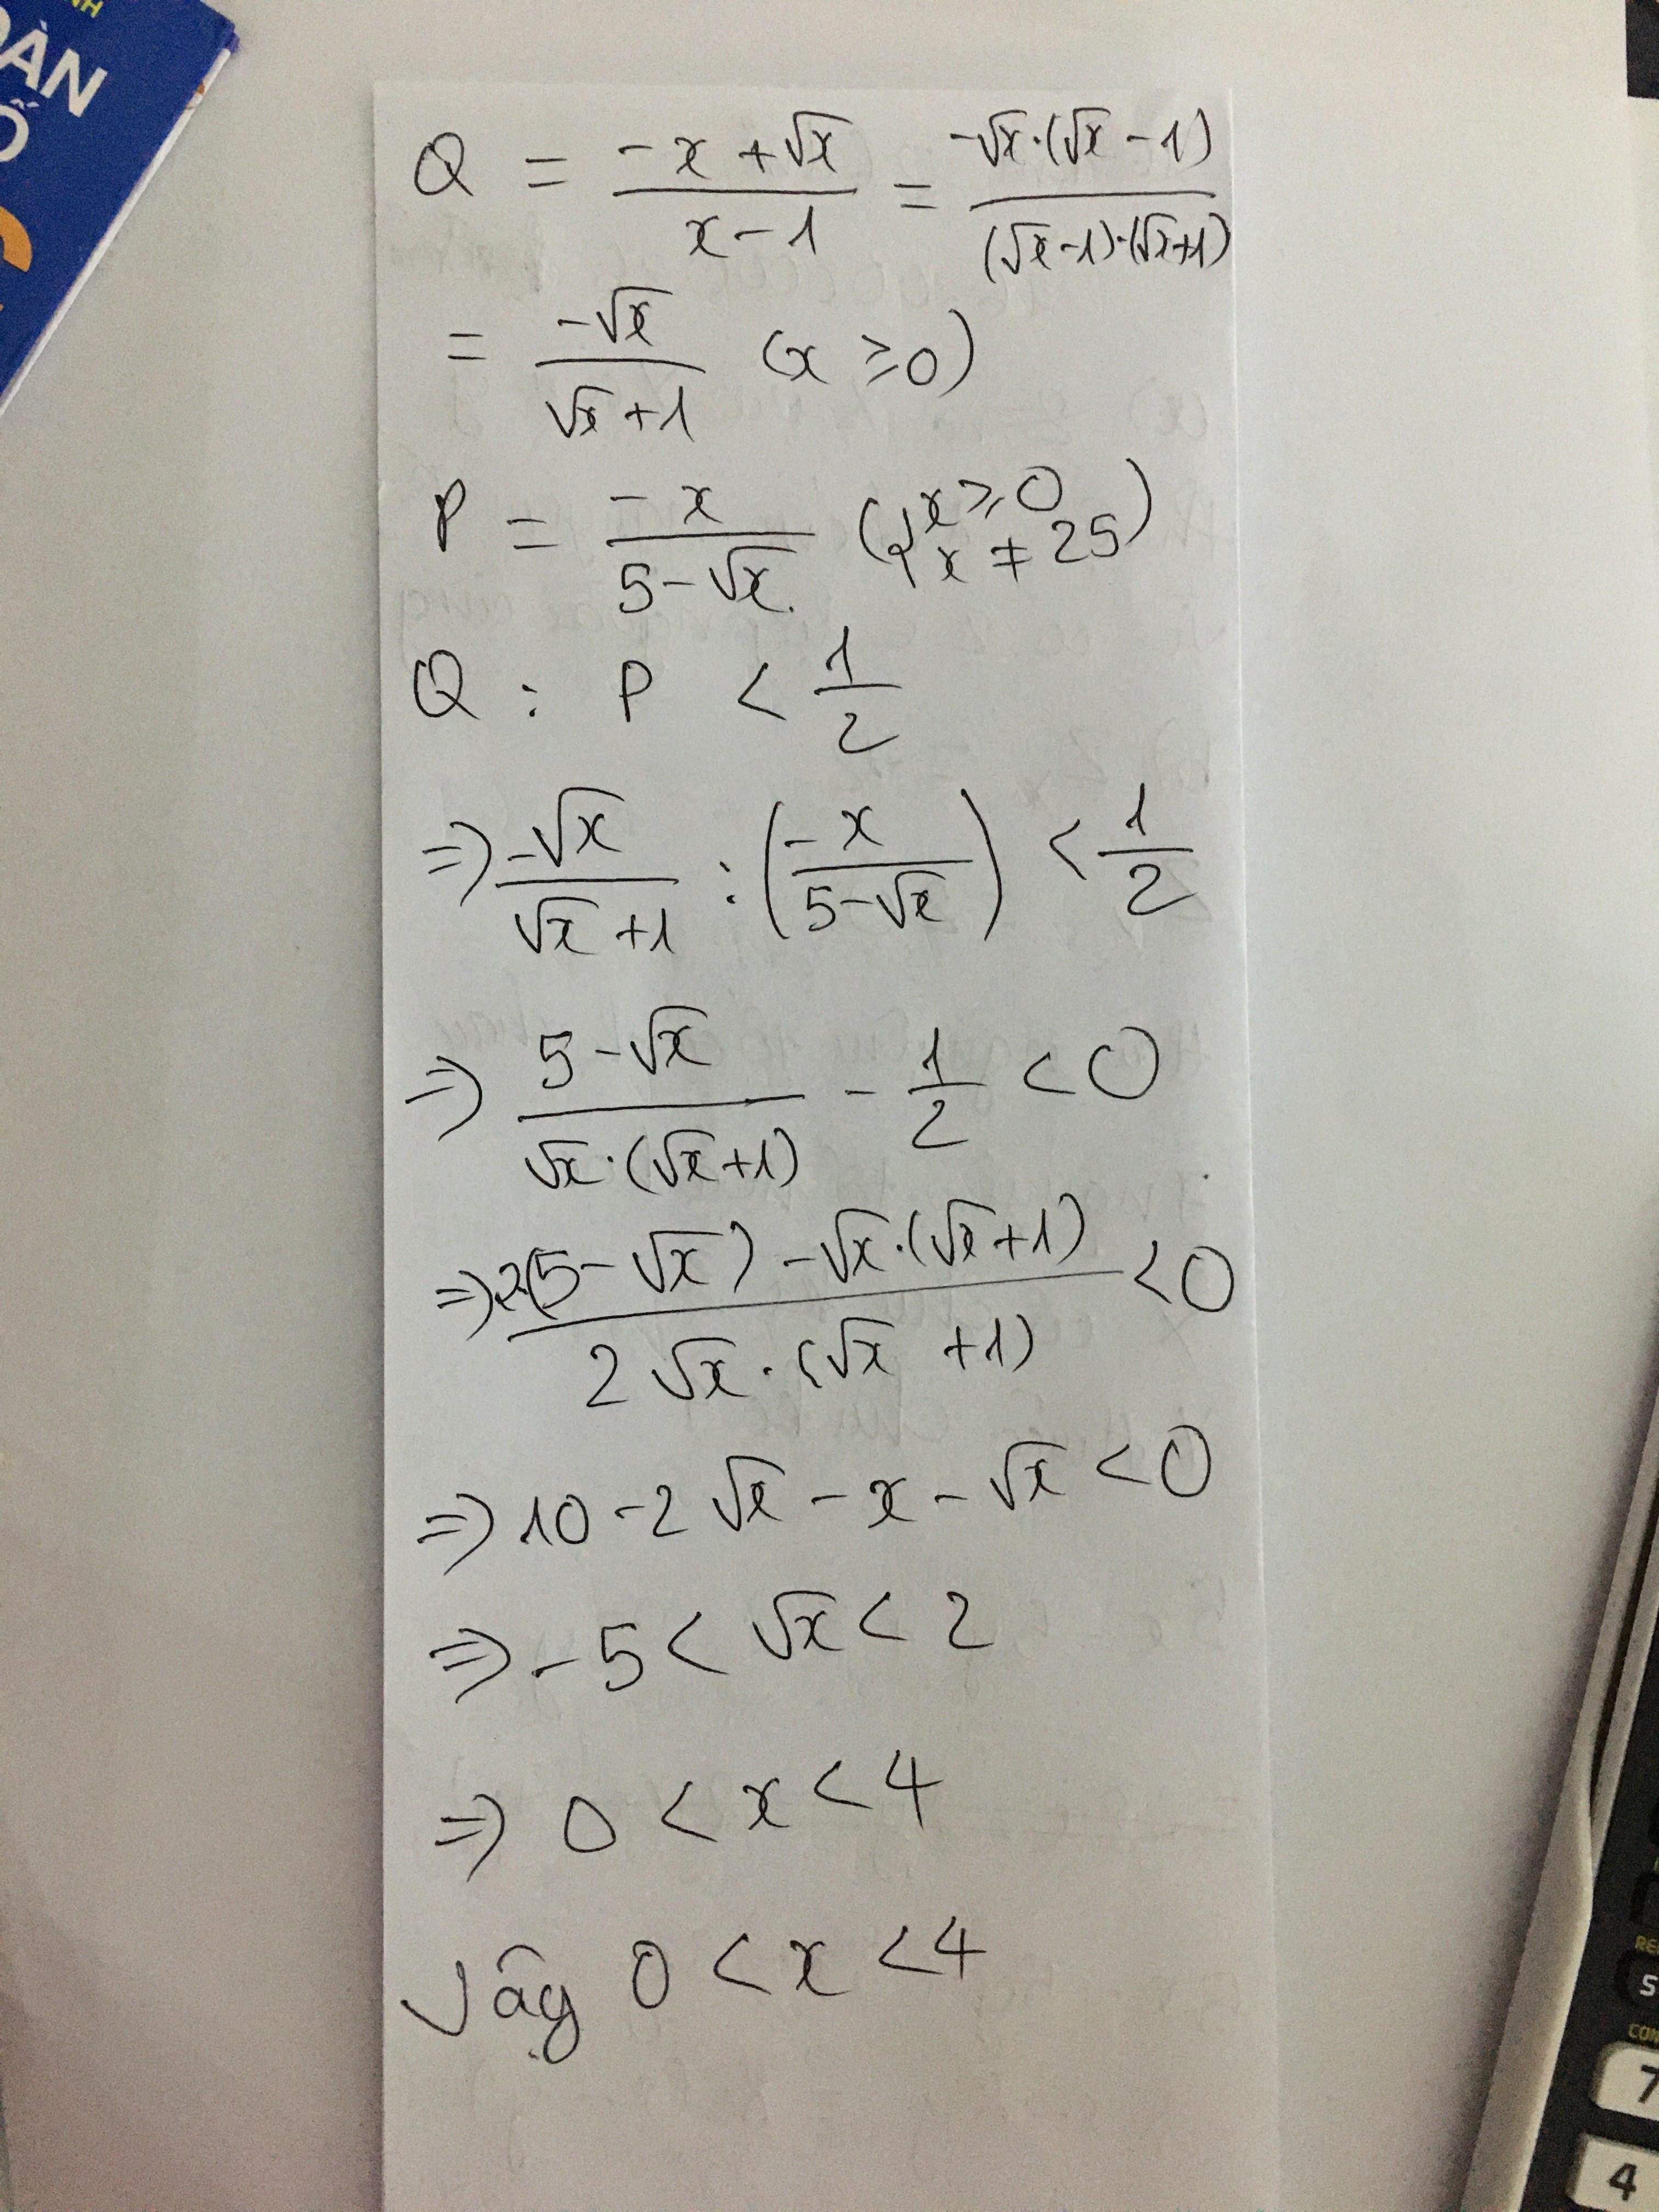 NH
ÀN
Ố
Q = \frac{-x+\sqrt{x}}{x-1} = \frac{-\sqrt{x}.(\sqrt{x}-1)}{(\sqrt{x}-1).(\sqrt{x}+1)}
= \frac{-\sqrt{x}}{\sqrt{x}+1} (x ≥ 0)
P = \frac{-x}{5-\sqrt{x}} ({x ≥ 0 x ≠ 25)
Q : P < \frac{1}{2}
=> \frac{-\sqrt{x}}{\sqrt{x}+1} : (\frac{-x}{5-\sqrt{x}}) < \frac{1}{2}
=> \frac{5-\sqrt{x}}{\sqrt{x}.(\sqrt{x}+1)} - \frac{1}{2} < 0
=> \frac{2(5-\sqrt{x})-\sqrt{x}.(\sqrt{x}+1)}{2\sqrt{x}.(\sqrt{x}+1)} < 0
=> 10 - 2\sqrt{x} - x - \sqrt{x} < 0
=> -5 < \sqrt{x} < 2
=> 0 < x < 4
Vậy 0 < x < 4
7
4